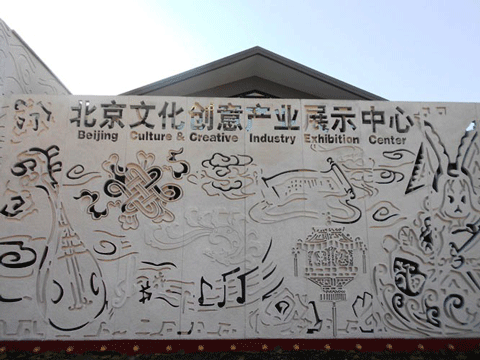 北京文化创意产业展示中心
Beijing Culture & Creative Industry Exhibition Center